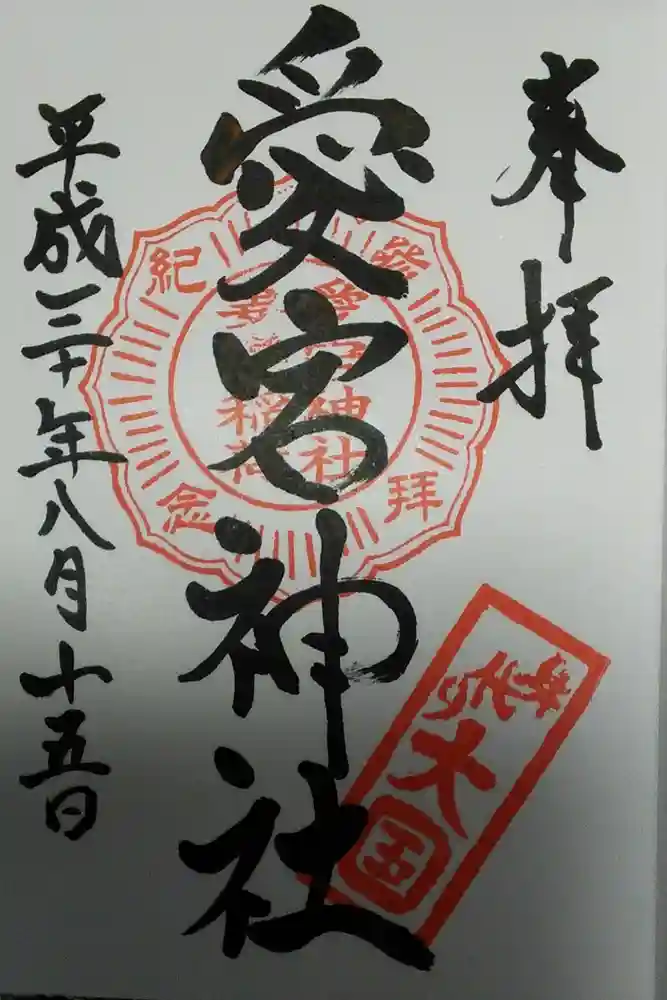 奉拝
愛宕神社
平成三十年八月十五日
參拜
紀念
愛宕神社
稲荷
大国